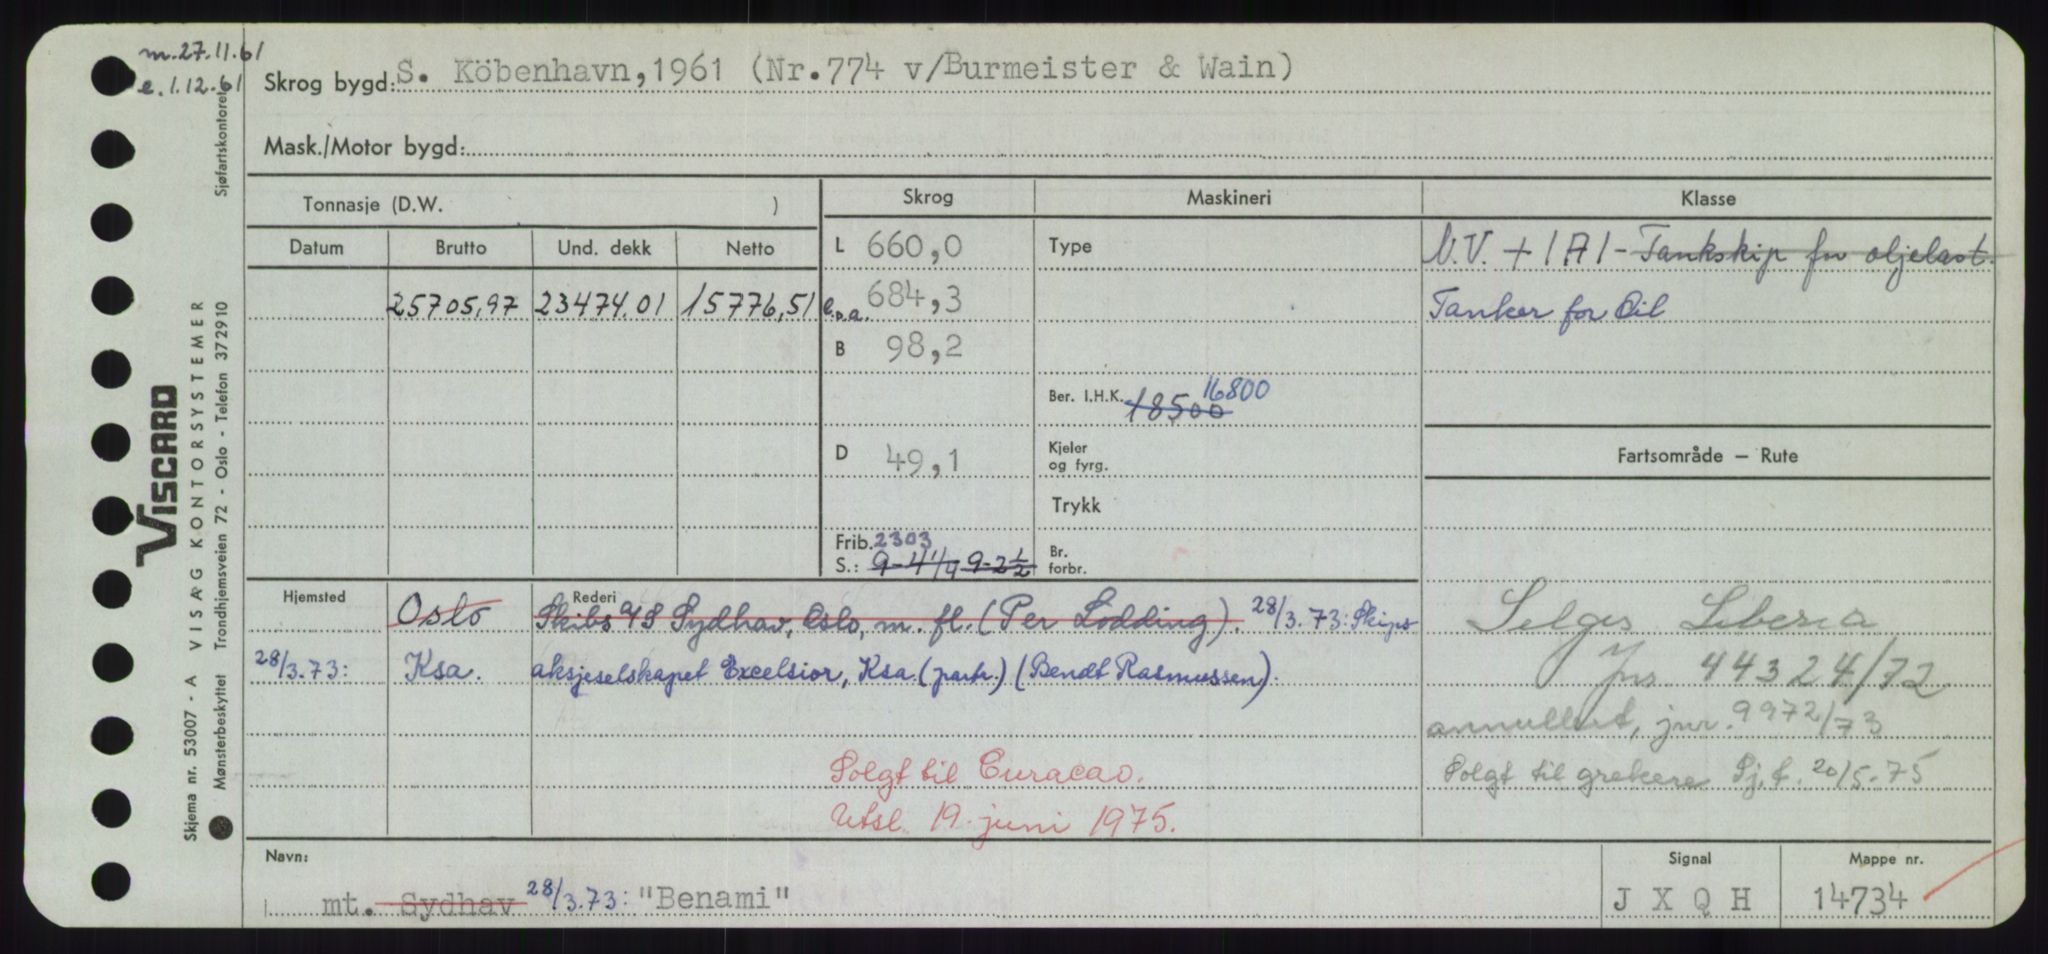 m.27.11.61
e.1.12.61
Skrog bygd: S. Köbenhavn,1961 (Nr.774 v/Burmeister & Wain)
Mask./Motor bygd:
Tonnasje (D.W. )
Skrog
Maskineri
Klasse
Datum
Brutto
Und. dekk
Netto
25705,97
23474.01
15776,51
L 660,0
l.o.a. 684,3
B 98,2
D 49,1
Frib. 2303
S.: 9-4 1/4 9-2 1/2
Type
Ber. I.H.K. 18500 16800
Kjeler
og fyrg.
Trykk
Br.
forbr.
N.V. + 1A1 - Tankskip for oljelast.
Tanker for Oil
Fartsområde — Rute
Selges Liberia
Jnr 44324/72
annullert, jnr. 9972/73
Solgt til grekere Sj.t. 20/5-75
Hjemsted
Rederi
Oslo
Skibs A/S Sydhav, Oslo, m. fl. (Per Lodding). 28/3.73: Skips
28/3.73: Ksa. aksjeselskapet Excelsior, Ksa (partr.) (Bendt Rasmussen).
Solgt til Curacao.
Utsl 19. juni 1975.
Navn:
mt. Sydhav 28/3.73: "Benami"
Signal
J X Q H
Mappe nr.
14734
VISCARD
Skjema nr. 53007 - A VISAG KONTORSYSTEMER
Mønsterbeskyttet Trondhjemsveien 72 - Oslo - Telefon 372910
Sjøfartskontoret